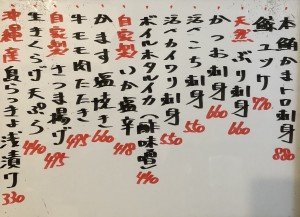 本鮪かまトロ刺身 880
鮪ユッケ 770
天然ぶり刺身 660
かつお刺身 660
活〆カイワリ刺身 550
活〆めじな刺身 550
ボイルホタルイカ(酢味噌) 440
自家製いか塩辛 418
かます塩焼き 660
牛モモ肉たたき 495
自家製さつま揚げ 495
生きくらげ天ぷら 440
沖縄産島らっきょ浅漬け 330